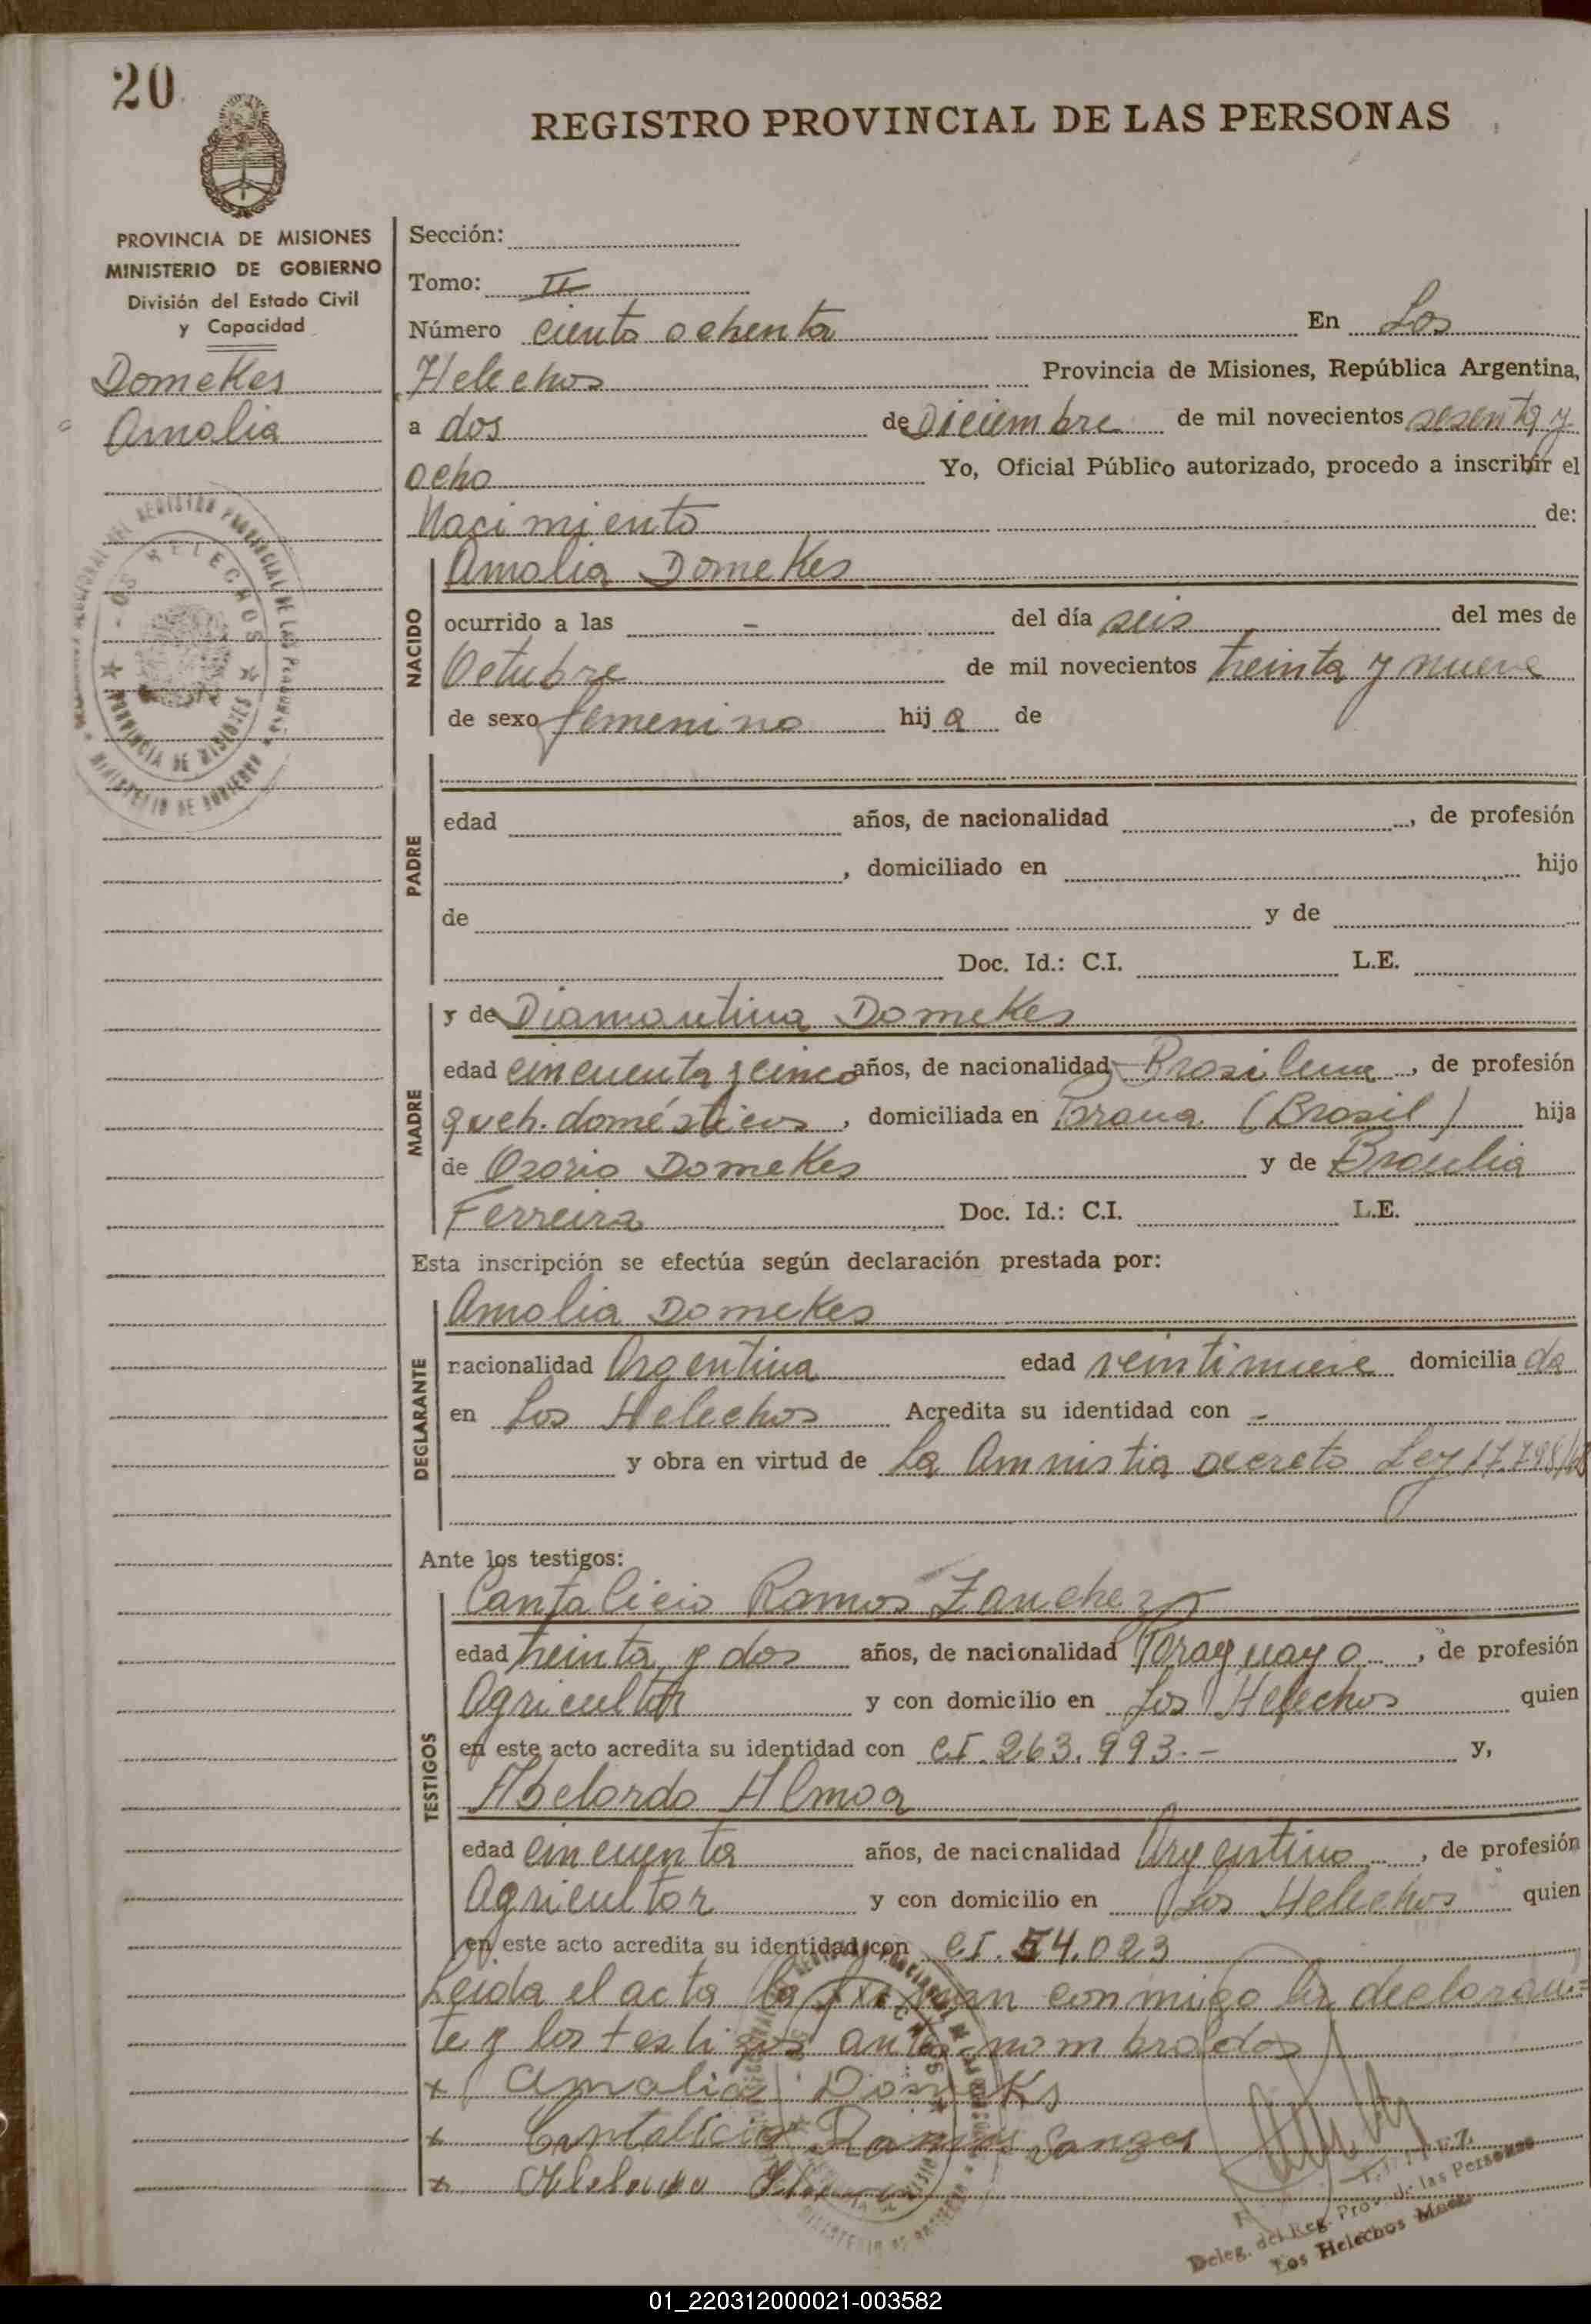 20
REGISTRO PROVINCIAL DE LAS PERSONAS
PROVINCIA DE MISIONES
MINISTERIO DE GOBIERNO
División del Estado Civil
y Capacidad
Domekes
Amalia
Sección:
Tomo: II
Número ciento ochenta En Los
Helechos Provincia de Misiones, República Argentina,
a dos de Diciembre de mil novecientos sesenta y
ocho Yo, Oficial Público autorizado, procedo a inscribir el
Nacimiento de:
NACIDO
Amalia Domekes
ocurrido a las - del día seis del mes de
Octubre de mil novecientos treinta y nueve
de sexo femenino hija de
PADRE
edad años, de nacionalidad , de profesión
, domiciliado en hijo
de y de
Doc. Id.: C.I. L.E.
MADRE
y de Diamantina Domekes
edad cincuenta y cinco años, de nacionalidad Brasilena, de profesión
queh. domésticos, domiciliada en Parana (Brasil) hija
de Osorio Domekes y de Braulia
Ferreira Doc. Id.: C.I. L.E.
Esta inscripción se efectúa según declaración prestada por:
DECLARANTE
Amalia Domekes
nacionalidad Argentina edad veintinueve domiciliada
en Los Helechos Acredita su identidad con -
y obra en virtud de La Amnistia decreto Ley 17.798/68
Ante los testigos:
TESTIGOS
Cantalicio Ramos Zanchez
edad treinta y dos años, de nacionalidad Paraguayo, de profesión
Agricultor y con domicilio en Los Helechos quien
en este acto acredita su identidad con C.I. 263.993.- y,
Abelardo Almoa
edad cincuenta años, de nacionalidad Argentino, de profesión
Agricultor y con domicilio en Los Helechos quien
en este acto acredita su identidad con C.I. 54.023
Leida el acta la firman conmigo la declaran=
te y los testigos antes nombrados
x Amalia Domeks
x Cantalicio Ramos Sanges
x Abelardo
Deleg. del Reg. Prov. de las Personas
Los Helechos Mnes.
01_220312000021-003582